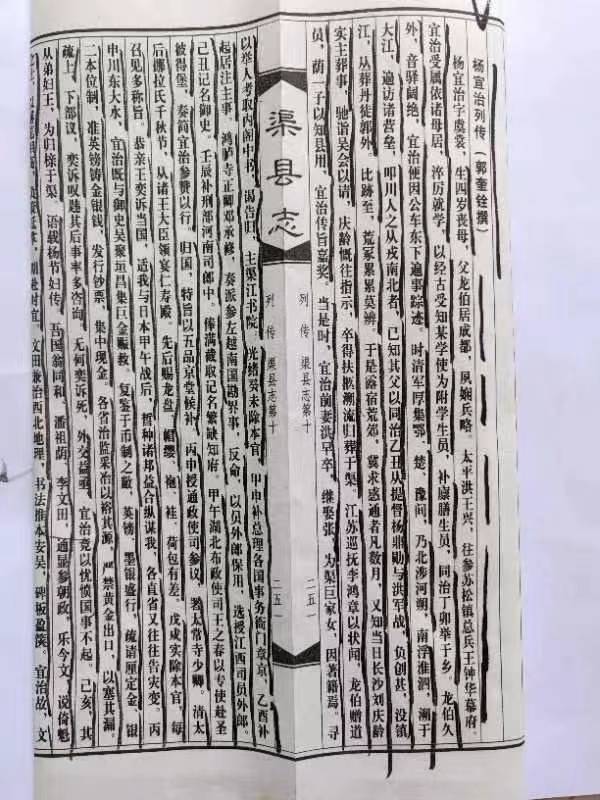 杨宜治列传（郭奎铨撰）
杨宜治字虞裳，生四岁丧母，父龙伯居成都，夙娴兵略。太平洪王兴，往参苏松镇总兵王钟华幕府。
宜治受属依诸母居，淬厉就学，以经古受知某学使为附学生员，补廪膳生员，同治丁卯举于乡。龙伯久
外，音驿阔绝，宜治便因公车东下遍事踪迹。时清军厚集鄂、楚、豫间，乃北涉河朔，南浮淮泗，溯于
大江，遍访诸营垒，叩川人之从戎南北者，已知其父以同治乙丑从提督杨鼎勋与洪军战，负创甚，没镇
江，丛葬丹徒郭外。比跡至，荒冢累累莫辨。于是露宿荒郊，冀求惑通者凡数月，又知当日长沙刘庆龄
实主葬事，驰诣吴会以请，庆龄慨往指示，卒得扶榇溯流归葬于渠。江苏巡抚李鸿章以状闻，龙伯赠道
员，荫一子以知县用，宜治传旨嘉奖。当是时，宜治前妻洪早卒，继娶张，为渠巨家女，因著籍焉。寻
列传 渠县志第十 二五一
渠县志
列传 渠县志第十 二五一
以举人考取内阁中书，谒告归，主渠江书院。光绪癸未除本官，甲申补总理各国事务衙门章京，乙酉补
起居注主事，鸿胪寺正卿邓承修，奏派参左越南国勘界事，反命，以员外郎保用，选授江西司员外郎。
己丑记名御史，壬辰补刑部河南司郎中。俸满截取记名繁缺知府。甲午湖北布政使司王之春以专使赴圣
彼得堡，奏简宜治参赞以行。归国，特旨以五品京堂候补。丙申授通政使司参议，署太常寺少卿。清太
后挪拉氏千秋节，从诸王大臣领宴仁寿殿。先后赐龙盘、帽缨、袍、袿、荷包有差。戊戌实除本官，每
召见多称旨。恭亲王奕䜣当国，适我与日本甲午战后，暂种诸邦益合纵谋我，各直省又往往告灾变。丙
申川东大水，宜治既与御史吴聚垣昌集巨金赈救。复鉴于币制之敝，英镑、墨银盛行，疏请厘定金、银
二本位制，准英镑铸金银钱，发行钞票，集中现金。各省治监采冶以裕其源，严禁黄金出口，以塞其漏。
疏上，下部议，奕䜣叹韪其后事率多咨询。无何奕䜣死，外交益亟，宜治竟以忧愤国事不起。己亥，其
从弟妇王，为归榇于渠，语载杨节妇传。吾国翁同和、潘祖荫、李文田，通显参朝政，乐今文，说倚魁
文田兼治西北地理，书法推本安吴，碑板盈箧。宜治故，文